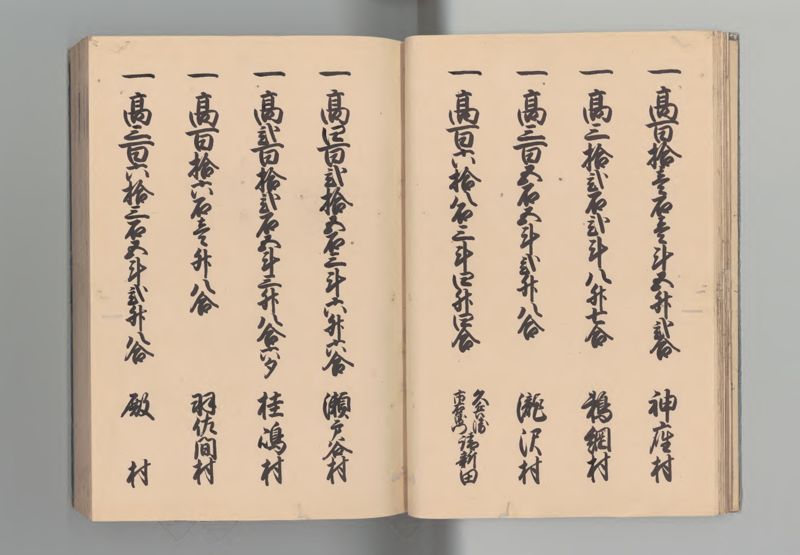 一 高百拾壱石壱斗五升弐合 神座村
一 高三拾弐石弐斗八升七合 鵜網村
一 高三百五石五斗弐升八合 瀧沢村
一 高百六拾八石三斗四升四合 久兵衛 市右衛門 請新田
一 高四百弐拾五石三斗六升六合 瀬戸谷村
一 高弐百拾弐石五斗三升八合六夕 桂嶋村
一 高百拾六石壱升八合 羽佐間村
一 高三百六拾三石五斗弐升八合 殿村